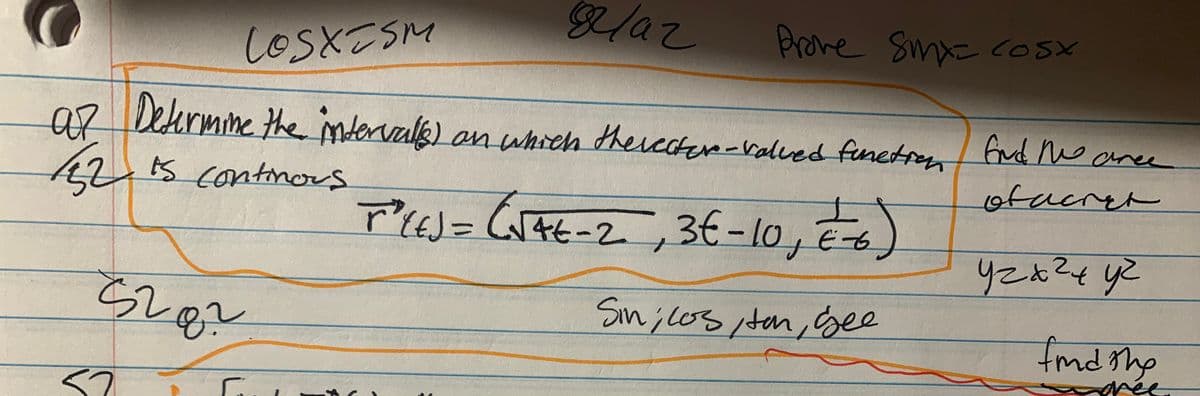 cosx = sin
82/az
Prove sinx = cosx
Determine the interval(s) on which the vector-valued function
is continous
r(t) = (√4t-2, 3t-10, 1/t-6)
find the area
of a
y=x²+ y²
Sin, cos, tan, Sec
find the